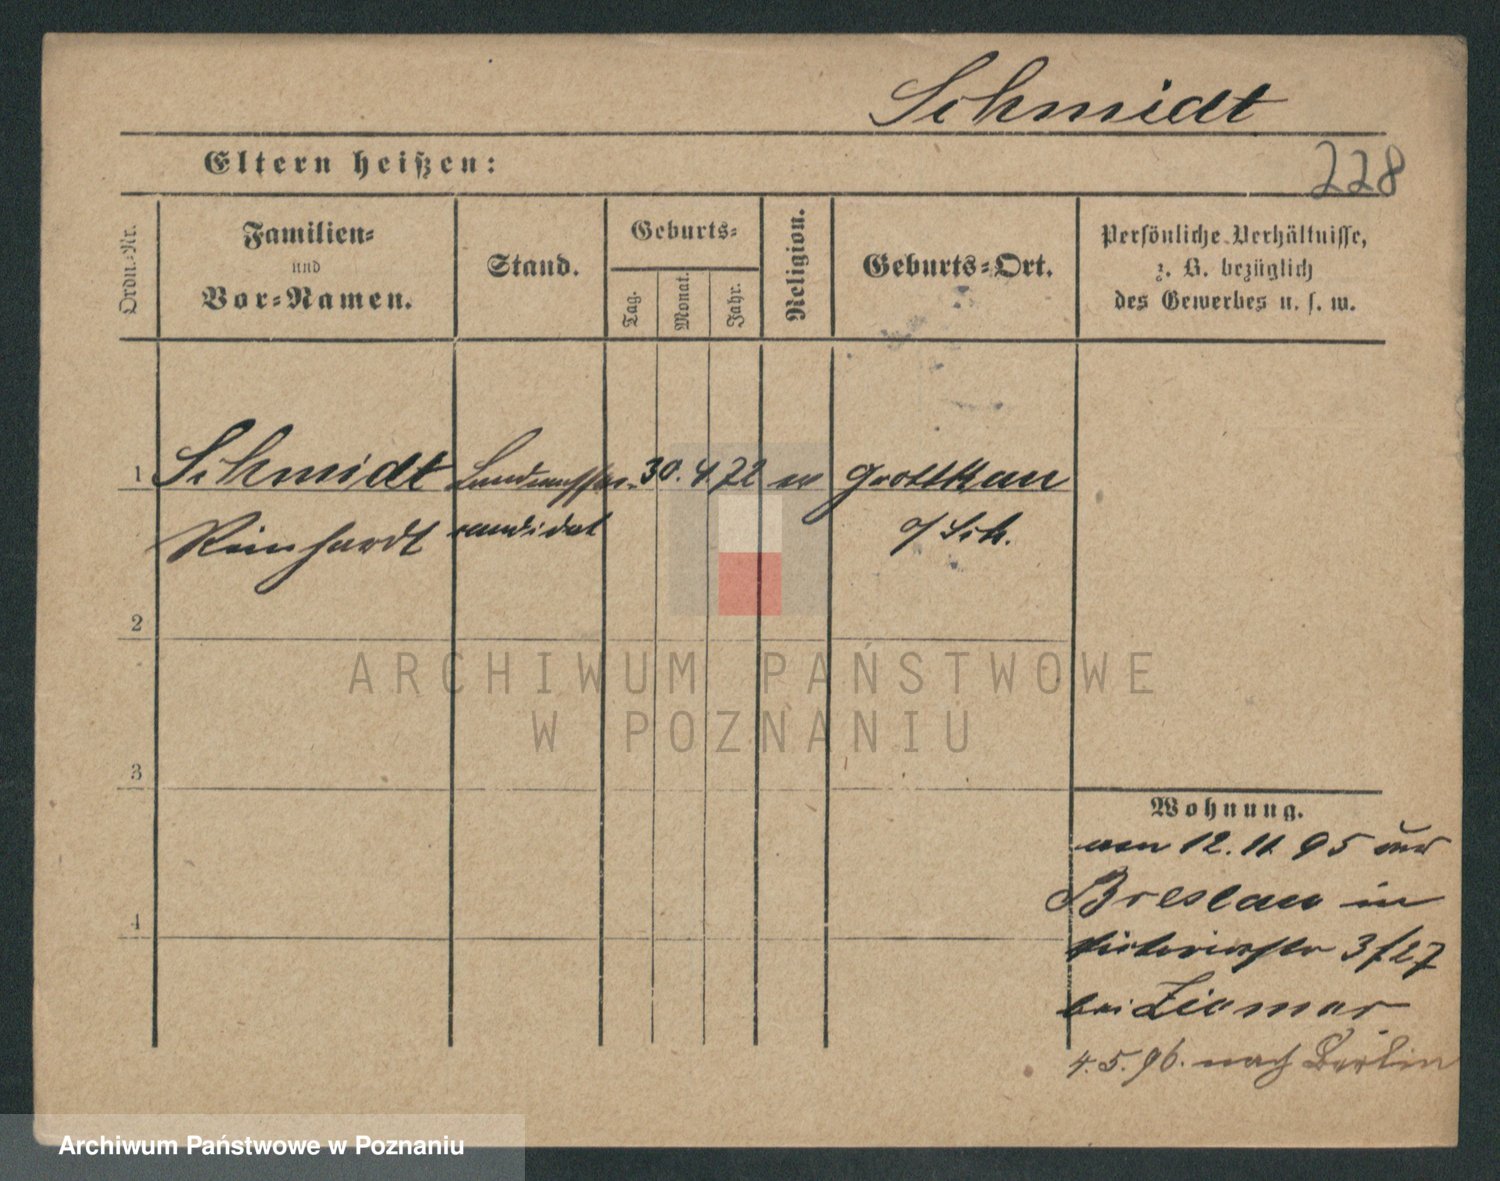 Schmidt
Eltern heißen:
228
Ordn.-Nr.
Familien-
und
Vor-Namen.
Stand.
Geburts-
Tag.
Monat.
Jahr.
Religion.
Geburts-Ort.
Persönliche Verhältnisse,
z. B. bezüglich
des Gewerbes u. s. w.
1 Schmidt 30. 4 72 Grottkau
Reinhardt kandidat o/Sch.
2
ARCHIWUM PAŃSTWOWE
W POZNANIU
3
Wohnung.
12. 11 95
Breslau in
3/27
bei
4
4. 5. 96. nach Berlin
Archiwum Państwowe w Poznaniu